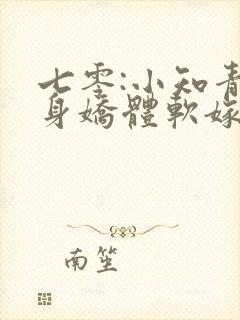 七零:小知青
身嬌體軟嫁
南笙